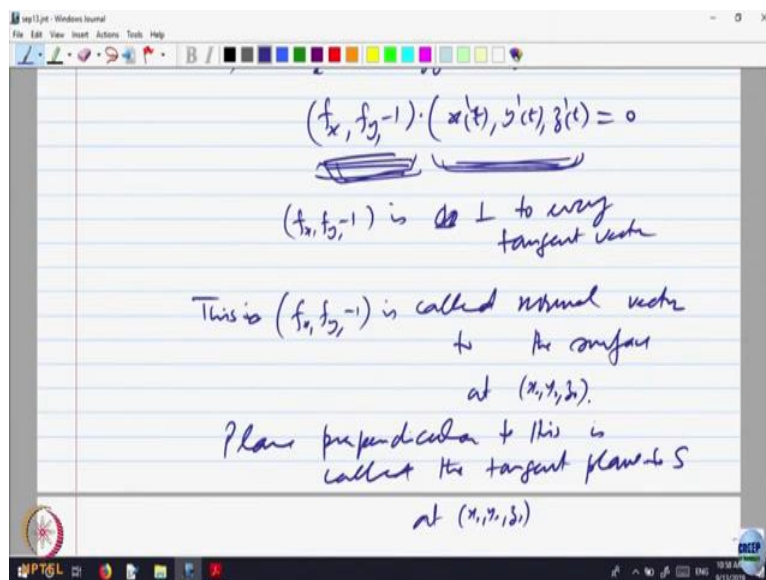 sep13.jnt - Windows Journal
File Edit View Insert Actions Tools Help
B I
(f_x, f_y, -1) · (x'(t), y'(t), z'(t)) = 0
(f_x, f_y, -1) is ⊥ to every
tangent vector
This is (f_x, f_y, -1) is called normal vector
to the surface
at (x₁, y₁, z₁).
Plane perpendicular to this is
called the tangent plane to S
at (x₁, y₁, z₁)
NPTEL
CDEEP
ENG
10:58 AM
9/13/2019